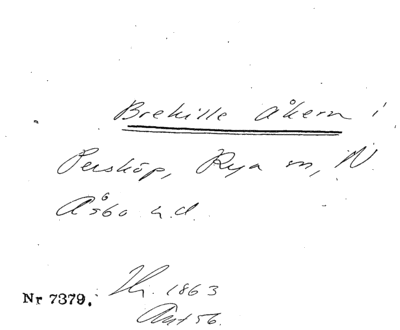 Brehille åkern i
Perstöp, Rya sn, N.
Åsbo h.d.
Nr 7379.
1863
Ant 56.